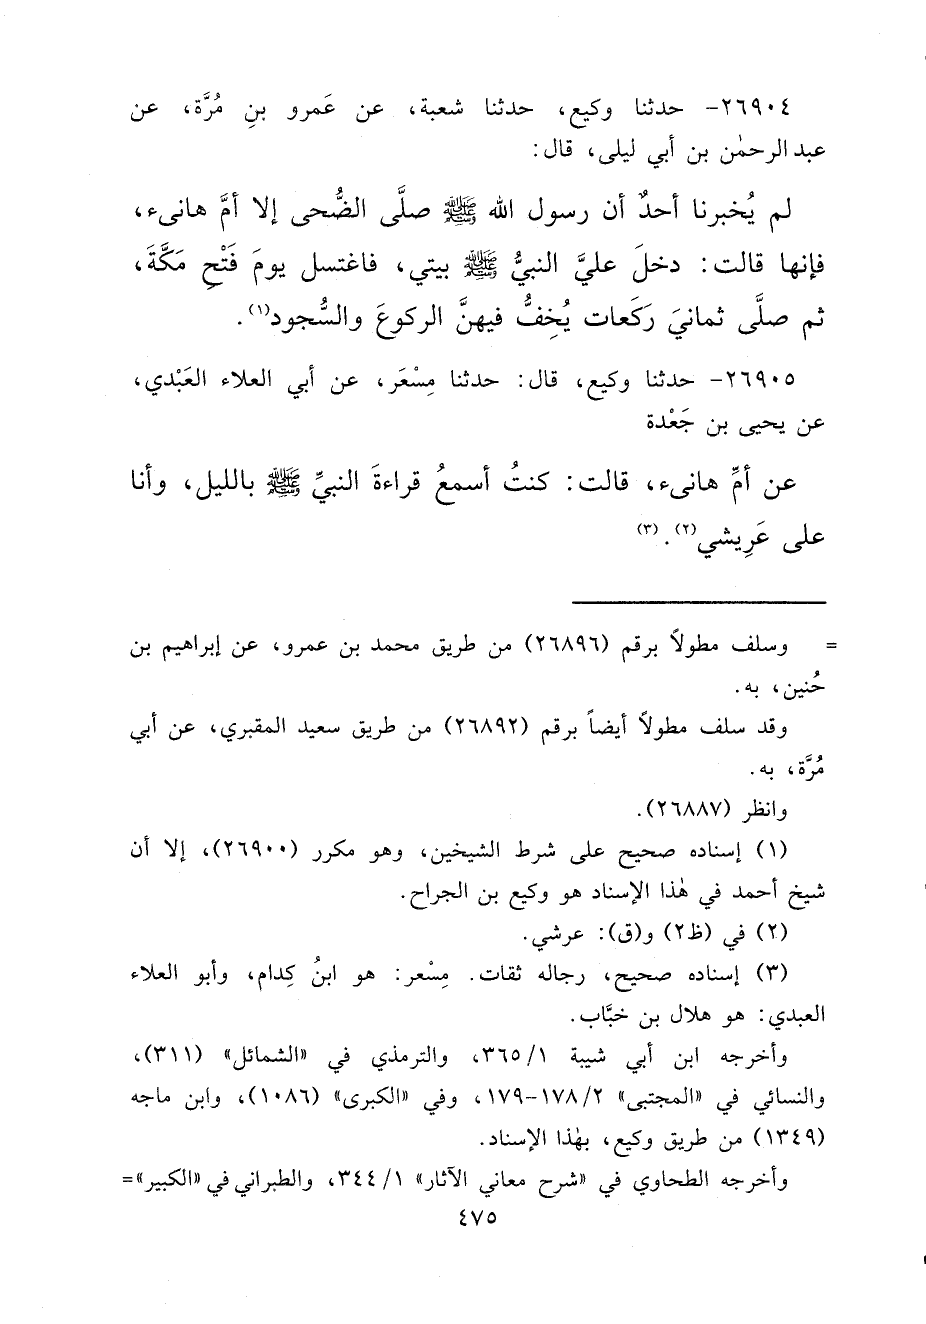 ٢٦٩٠٤- حدثنا وكيع، حدثنا شعبة، عن عَمرو بنِ مُرَّة، عن
عبد الرحمٰن بن أبي ليلى، قال:
لم يُخبرنا أحدٌ أن رسول الله ﷺ صلَّى الضُّحى إلا أمَّ هانىء،
فإنها قالت: دخلَ عليَّ النبيُّ ﷺ بيتي، فاغتسل يومَ فَتْحِ مَكَّةَ،
ثم صلَّى ثمانيَ رَكَعات يُخِفُّ فيهنَّ الركوعَ والسُّجود(١).
٢٦٩٠٥- حدثنا وكيع، قال: حدثنا مِسْعَر، عن أبي العلاء العَبْدي،
عن يحيى بن جَعْدة
عن أمِّ هانىء، قالت: كنتُ أسمعُ قراءةَ النبيِّ ﷺ بالليل، وأنا
على عَرِيشي(٢).(٣)
= وسلف مطولاً برقم (٢٦٨٩٦) من طريق محمد بن عمرو، عن إبراهيم بن
حُنين، به.
وقد سلف مطولاً أيضاً برقم (٢٦٨٩٢) من طريق سعيد المقبري، عن أبي
مُرَّة، به.
وانظر (٢٦٨٨٧).
(١) إسناده صحيح على شرط الشيخين، وهو مكرر (٢٦٩٠٠)، إلا أن
شيخ أحمد في هٰذا الإسناد هو وكيع بن الجراح.
(٢) في (ظ٢) و(ق): عرشي.
(٣) إسناده صحيح، رجاله ثقات. مِسْعر: هو ابنُ كِدام، وأبو العلاء
العبدي: هو هلال بن خبَّاب.
وأخرجه ابن أبي شيبة ٣٦٥/١، والترمذي في «الشمائل» (٣١١)،
والنسائي في «المجتبى» ١٧٨/٢-١٧٩، وفي «الكبرى» (١٠٨٦)، وابن ماجه
(١٣٤٩) من طريق وكيع، بهٰذا الإسناد.
وأخرجه الطحاوي في «شرح معاني الآثار» ٣٤٤/١، والطبراني في «الكبير»=
٤٧٥